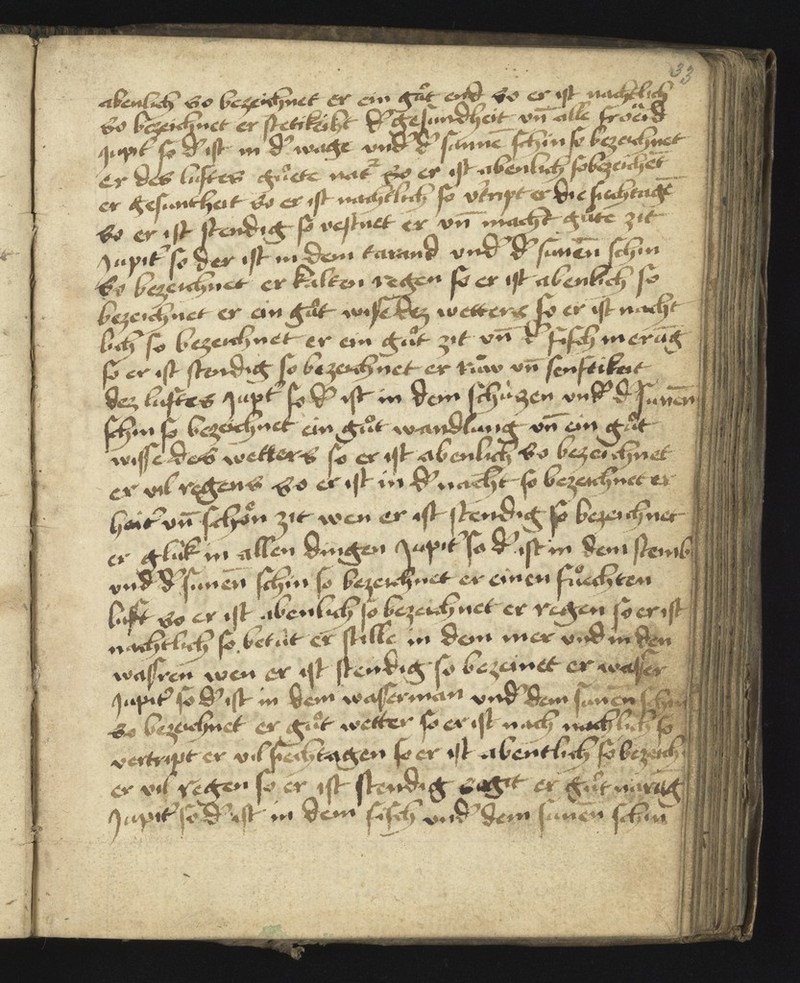 33
abenlich so bezeichnet er ein gůt end so er ist nachtlich
so bezeichnet er stetikeiht d' gesundheit vn̄ alle froͤid
Jupit' so d' ist in d' wage vnd' d' sunnē schin so bezeichnet
er des luftes guͤete nat' so er ist abenlich so bezeichēt
er gesuntheit so er ist nachtlich so v'tript er die siechtagē
so er ist stendig so vestnet er vn̄ macht gůte zit
Jupit' so der ist in dem tarand vnd' d' sunen̄ schin
so bezeichnet er kalten regen so er ist abenlich so
bezeichnet er ein gůt wisse dez wetters so er ist nacht
lich so bezeichnet er ein gůt zit vn̄ d' fisch merūg
so er ist stendig so bezeichnet er růw vn̄ senftikeit
dez luftes Jupt' so d' ist in dem schützen vnd' d' sunen̄
schin so bezeichnet ein gůt wandlung vn̄ ein gůt
wisse des wetters so er ist abenlich so bezeichnet
er vil regens so er ist in d' nacht so bezeichnet er
heit' vn̄ schoͤn zit wen er ist stendig so bezeichnet
er glük in allen dingen Jupit' so d' ist in dem steinb
vnd' d' sunen̄ schin so bezeichnet er einen fuͤechten
luft so er ist abenlich so bezeichnet er regen so er ist
nachtlich so betüt er stille in dem mer vnd in den
wassren wen er ist stendig so bezeinet er wasser
Jupit' so d' ist in dem wasserman vnd' dem sunen schin
so bezeichnet er gůt wetter so er ist nach nachlich so
vertript er vil siechtagen so er ist abentlich so bezeich
er vil regen so er ist stendig sagit er gůt narūg
Jupit' so d' ist in dem fisch vnd' dem sunen schin